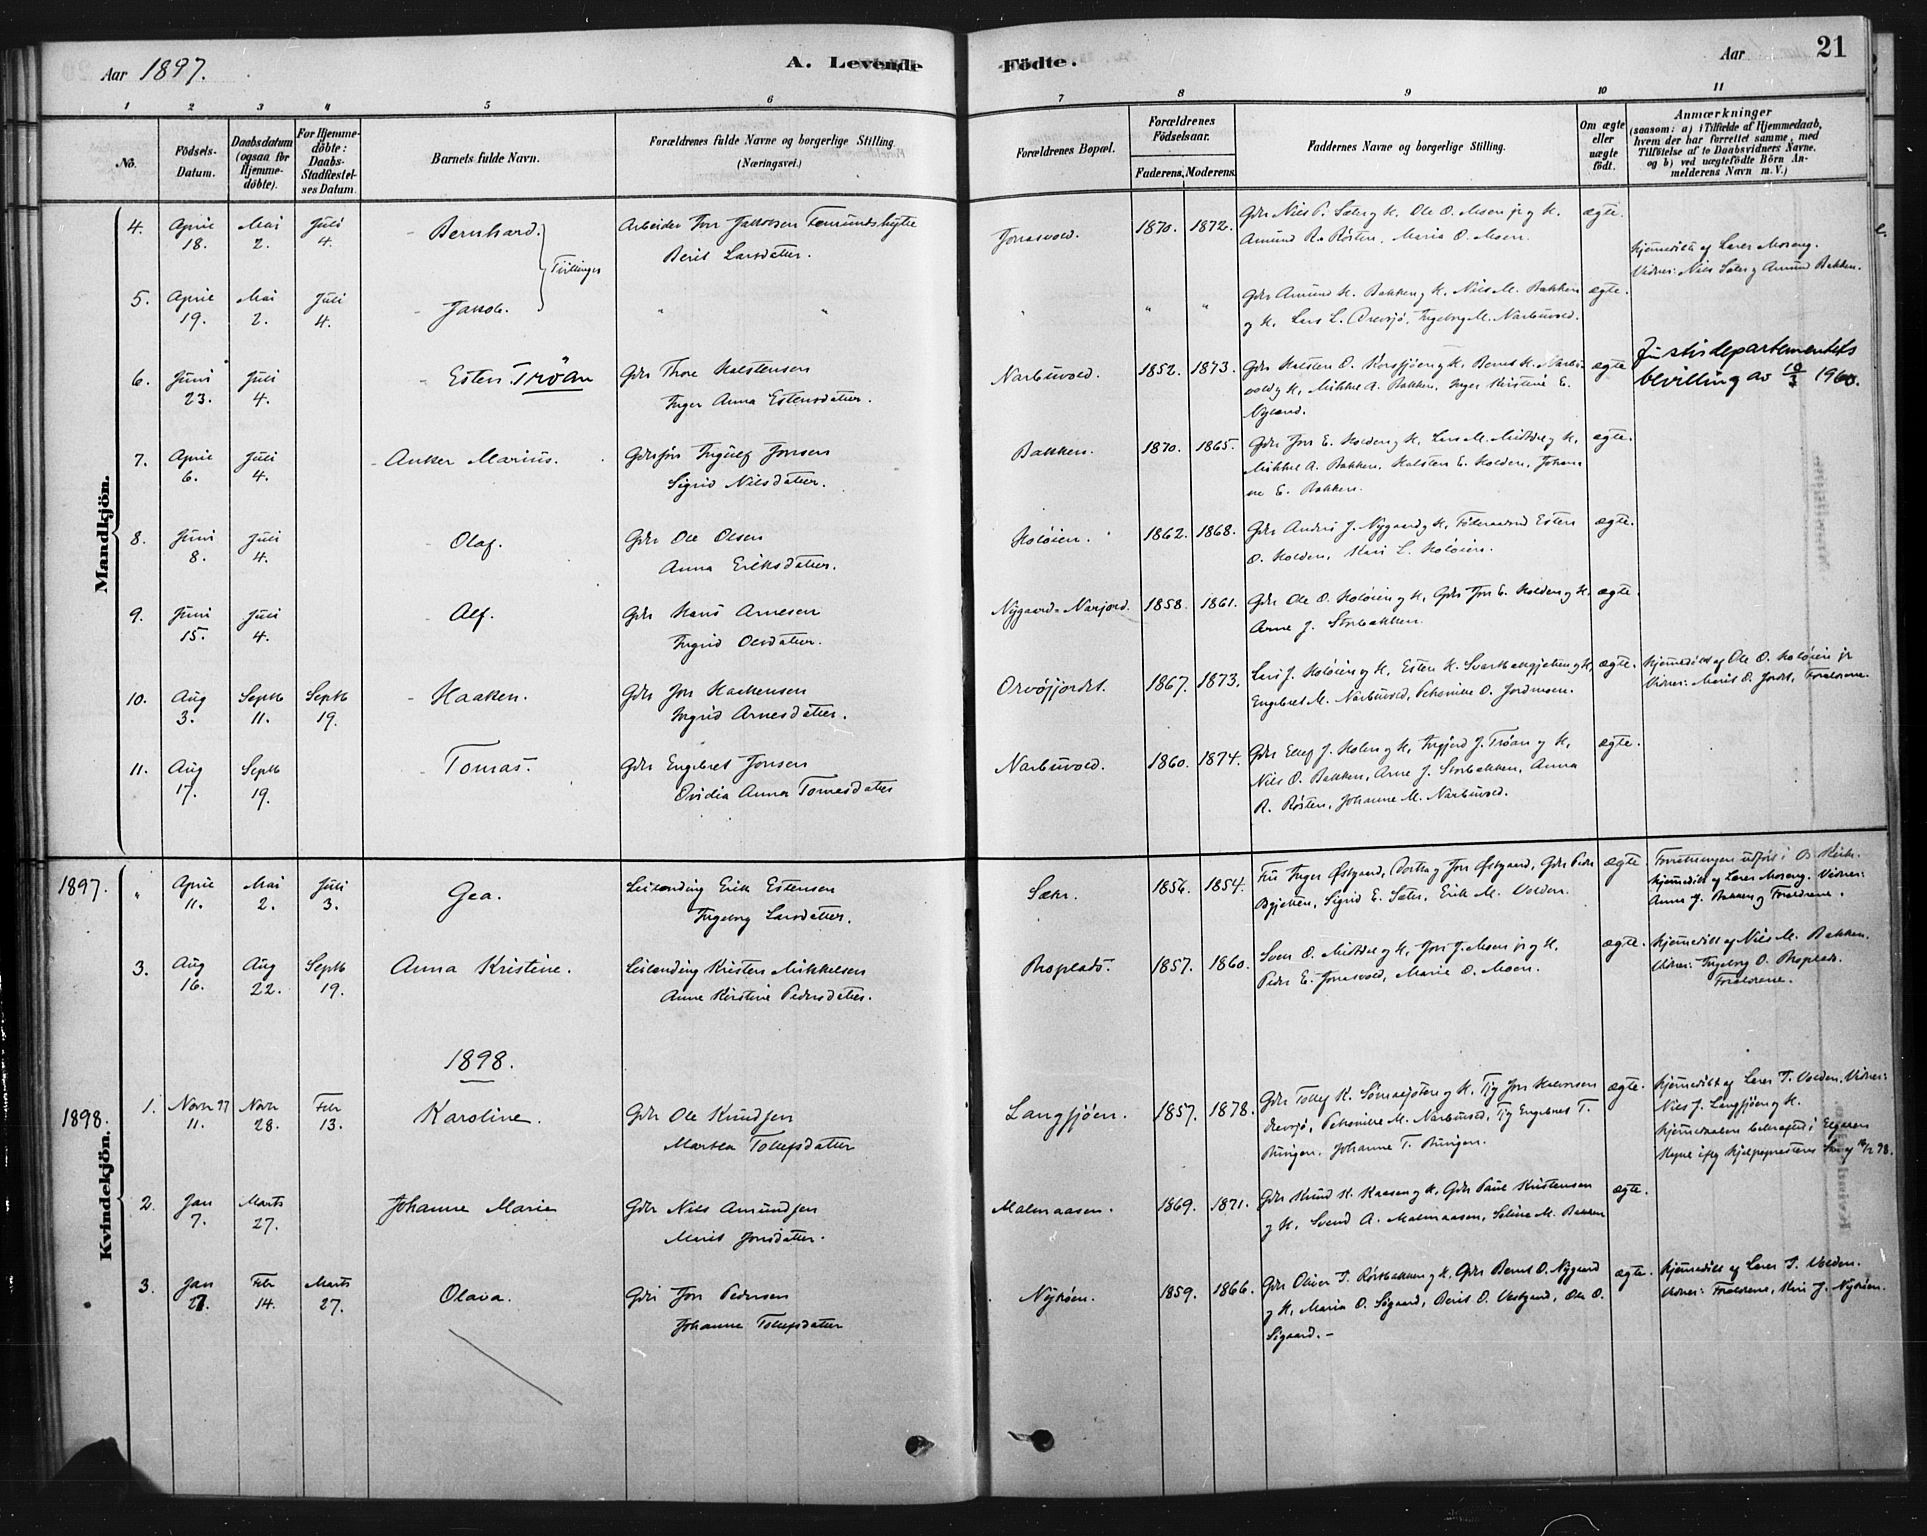 Aar 1897.
A. Levende
Födte.
Aar
21
1
2
3
4
5
6
7
8
9
10
11
No.
Födsels-
Datum.
Daabsdatum
(ogsaa for
Hjemme-
döbte).
For Hjemme-
döbte:
Daabs-
Stadfæstel-
ses Datum.
Barnets fulde Navn.
Forældrenes fulde Navne og borgerlige Stilling.
(Næringsvei.)
Forældrenes Bopæl.
Forældrenes
Födselsaar.
Faderens.
Moderens.
Faddernes Navne og borgerlige Stilling.
Om ægte
eller
uægte
födt.
Anmærkninger
(saasom: a) i Tilfælde af Hjemmedaab,
hvem der har forrettet samme, med
Tilföielse af to Daabsvidners Navne,
og b) ved uægtefödte Börn An-
melderens Navn m. V.)
Mandkjön.
4. April 18. Mai 2. Juli 4. Bernhard. Arbeider Jon Jakobsen Femundshytte
Berit Larsdatter.
Tvillinger
Jonasvold. 1870. 1872. Gdr Nils P. Sæter og K. Ole O. Moen jr og K.
Amund R. Røsten, Maria O. Moen.
ægte.
Hjemmedøbt af Lærer Moseng.
Vidner: Nils Sæter og Amund Bakken.
5. April 19. Mai 2. Juli 4. Jakob. " "
" " " Gdr Amund K. Bakken og K. Nils M. Bakken
og K. Lars L. Drevsjø, Ingeborg M. Narbuvold.
ægte.
6. Juni 23. Juli 4. Esten Trøan Gdr Thore Halstensen
Inger Anna Estensdatter.
Narbuvold. 1852. 1873. Gdr Halsten O. Korssjøen og K. Bernt K. Narbu-
vold og K, Mikkel A. Bakken, Inger Kristine E.
ægte
Justisdepartementets
bevilling av 10/3 1960.
7. April 6. Juli 4. Anker Marius. Ingulf Jonsen
Sigrid Nilsdatter.
Bakken. 1870. 1865. Gdr Jon E. Holden og K, Lars M. Midtdal og K.
Mikkel A. Bakken, Halsten E. Holden, Johan-
ne E. Bakken.
ægte.
8. Juni 8. Juli 4. Olaf. Gdr Ole Olsen
Anna Eriksdatter.
Holøien. 1862. 1868. Gdr Anders J. Nygaard og K, Føderaadsmd Esten
O. Holden, Kari L. Holøien.
ægte.
9. Juni 15. Juli 4. Alf. Gdr Hans Arnesen
Ingrid Olsdatter.
Nygaard-Narjord. 1858. 1861. Gdr Ole O. Holøien og K, Gdr Jon E. Holden og K.
Arne J. Storbakken.
ægte.
10. Aug 3. Septb 11. Septb 19. Haaken. Gdr Jon Haakensen
Ingrid Arnesdatter.
Orvøsjordet. 1867. 1873. Lars J. Holøien og K, Esten K. Svartbækgjelten og K,
Engebret M. Narbuvold, Petronille O. Jordmoen.
ægte.
Hjemmedøbt af Ole O. Holøien jr
Vidner: Marit O. Jordet, Forældrene.
11. Aug 17. Septb 19. Tomas. Gdr Engebret Jonsen
Ovidia Anna Tomasdatter
Narbuvold. 1860. 1874. Gdr Ellef J. Holen og K, Ingjerd J. Trøan og K,
Nils O. Bakken, Arne J. Storbakken, Anna
R. Røsten, Johanne M. Narbuvold.
ægte.
1897.
" April 11. Mai 2. Juli 3. Gea. Leilænding Erik Estensen
Ingeborg Larsdatter.
Sæter. 1856. 1854. Fru Inger Østgaard, Dorthe og Jon Østgaard, Gdr Peder
Bgjelten, Sigrid E. Sæter, Erik M. Volden.
ægte.
Forretningen udført i Kirke.
Hjemmedøbt af Lærer Moseng. Vidner:
Anne J. Bakken og Forældrene.
3. Aug 16. Aug 22. Septb 19. Anna Kristine. Leilænding Kristen Mikkelsen
Anne Kirstine Pedersdatter.
Moplads. 1857. 1860. Sven O. Midtdal og K, Jon J. Moen jr og K.
Peder E. Jonasvold, Marie O. Moen.
ægte.
Hjemmedøbt af Nils M. Bakken.
Vidner: Ingeborg O. Moplads.
Forældrene.
1898.
1898.
Kvindekjön.
1. Novbr 97 11. Novbr 28. Febr 13. Karoline. Gdr Ole Knudsen
Martea Tollefsdatter
Langsjøen. 1857. 1878. Gdr Tollef K. Sømaasjøen og K, Tjg Jon Halvorsen
Drevsjø, Petronille M. Narbuvold, Tjg Engebret T.
Buingen, Johanne T. Buingen.
ægte.
Hjemmedøbt af Lærer T. Volden. Vidner:
Nils J. Langsjøen og K.
Hjemmedaaben bekræftet i Elgaaen
2. Jan 7. Marts 27. Johanne Marie Gdr Nils Amundsen
Marit Jonsdatter.
Malmaasen. 1869. 1871. Gdr Knud K. Kaasen og K, Gdr Paul Kristensen
og K, Svend A. Malmaasen, Seline M. Bakken
ægte.
3. Jan 27. Febr 14. Marts 27. Olava. Gdr Jon Pedersen
Johanne Tollefsdatter
Nyrøen. 1859. 1866. Gdr Oliver T. Rørosbakken og K, Gdr Bernt O. Nygaard
og K, Maria O. Sigaard, Berit O. Vestgaard, Ole O.
Sigaard.
ægte.
Hjemmedøbt af Lærer T. Volden.
Vidner: Forældrene, Kari J. Nyrøen.